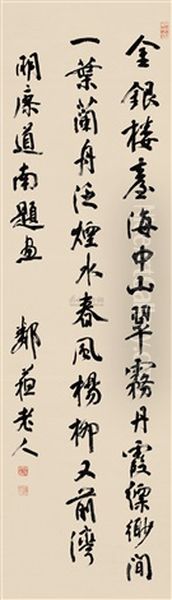 金銀樓臺海中山翠霧丹霞縹緲間
一葉蘭舟泛煙水春風楊柳又前灣
關廉道南題画
鄰蘇老人